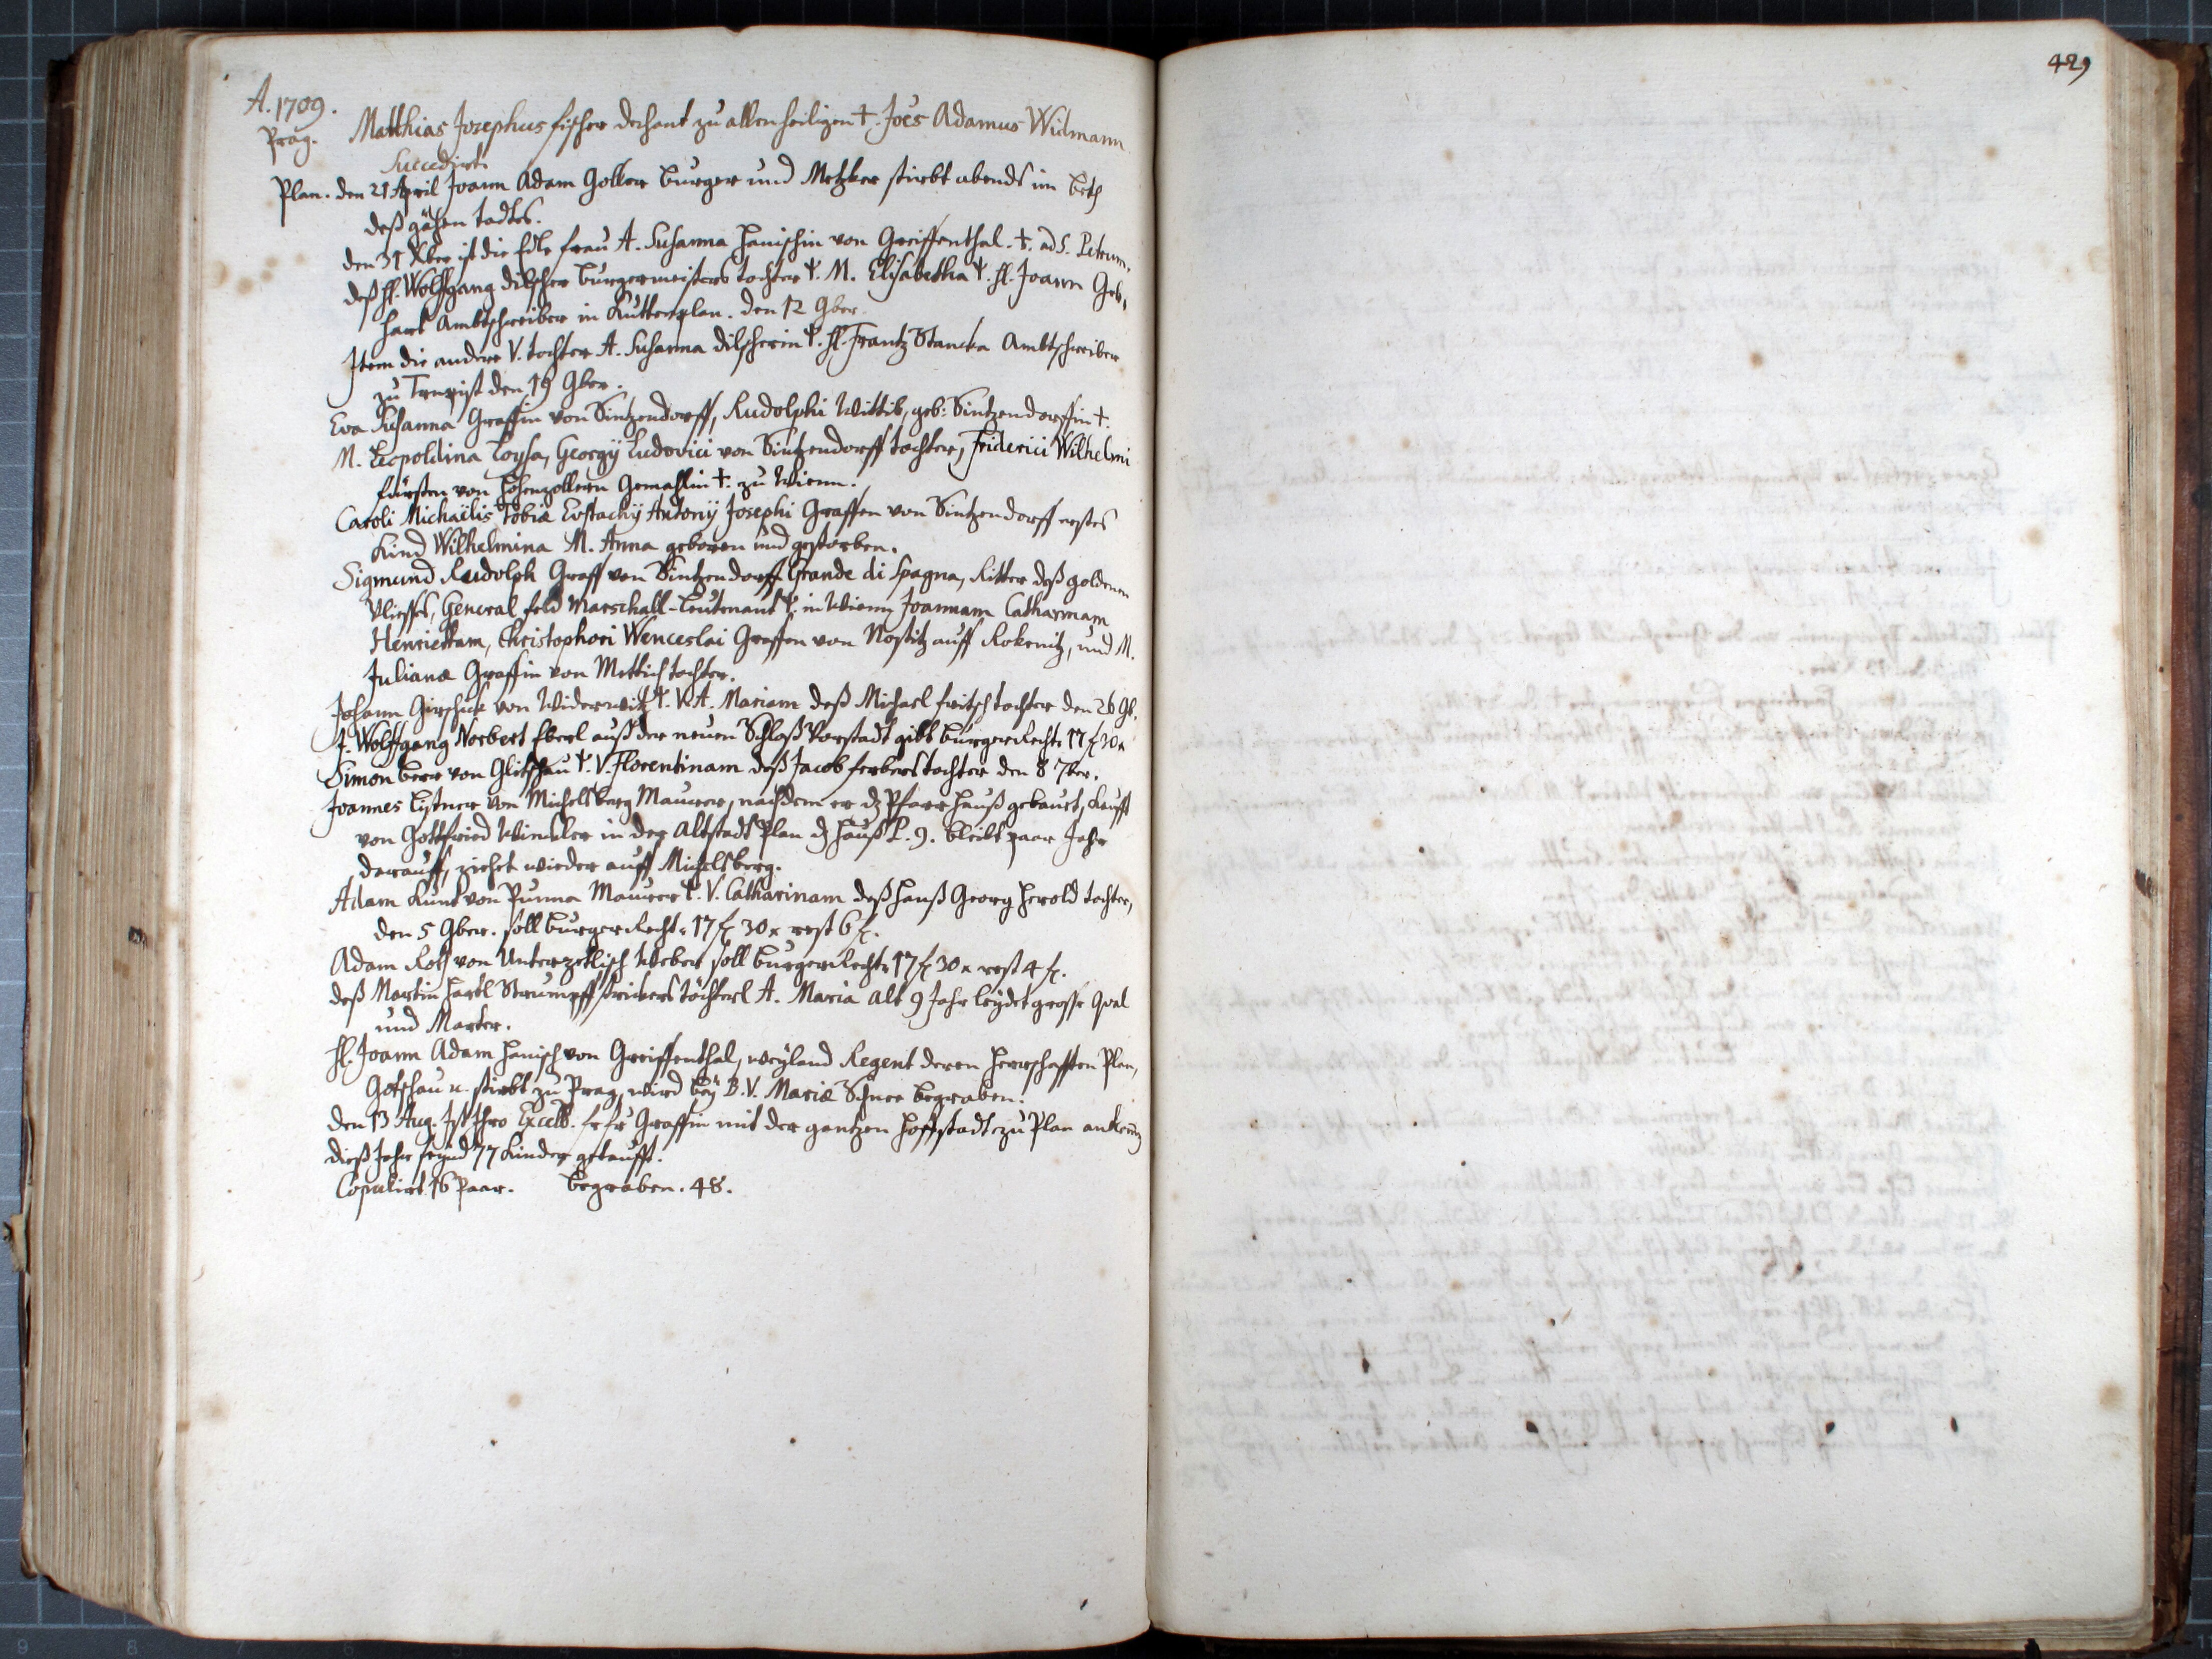 429
A. 1709.
Prag. Matthias Josephus fischer dechant zu allen heiligen †. Joẽs Adamus Widmann
Succedirt.
Plan. den 21 April Joann Adam Goller burger und Metzker stirbt abends im beth
deß gähen todtes.
den 31 Xber ist die Edle frau A. Susanna Hanischin von Greiffenthal. †. ad S. Petrum.
deß H. Wolffgang dilscher burgermeisters tochter ☿. M. Elisabetha ☿. H. Joann Geb,
hart Ambtschreiber in Kuttenplan. den 12 9ber.
Item die andere V. tochter A. Susanna dilscherin ☿. H. Frantz Stancka Ambtschreiber
zu Trpist den 19 9ber.
Eva Susanna Graffin von Sintzendorff, Rudolphi Wittib, geb: Sintzendorffin †.
M. Leopoldina Loysa, Georgÿ Ludovici von Sintzendorff tochter, Friderici Wilhelmi
fürsten von Hohenzollern Gemahlin †. zu Wienn.
Caroli Michaëlis Tobiæ Eustachÿ Antonÿ Josephi Graffen von Sintzendorff erstes
Kind Wilhelmina M. Anna geboren und gestorben.
Sigmund Rudolph Graff von Sintzendorff Grande di Spagna, Ritter deß goldenen
Vliesses, General feld Marschall-Leutenant ☿. in Wienn Joannam Catharinam
Henriettam, Christophori Wenceslai Graffen von Nostitz auff Rokenitz, und M.
Julianæ Graffin von Mettich tochter.
Johann Girschick von Widerwitz ☿. V. A. Mariam deß Michael fritsch tochter den 26 9b.
J. Wolffgang Norbert Eberl auß der neuen Schloß Vorstadt gibt burger Recht 17 f 30 x
Simon beer von Glitschau ☿. V. Florentinam deß Jacob ferbers tochter den 8 7ber.
Joannes Listner von Michelsberg Maurer, nachdem er dz Pfarr Hauß gebauet, kaufft
von Gottfried Winckler in der Altstadt Plan dz Hauß L. 9. bleibt paar Jahr
darauff, ziehet wieder auff Michelsberg.
Adam Kunt von Purma Maurer ☿. V. Catharinam deß Hanß Georg Herold tochter,
den 5 9ber. soll burger Recht 17 f 30 x rest 6 f.
Adam Roth von Unterzetlisch Weber soll burger Recht 17 f 30 x rest 4 f.
deß Martin Hartl Strumpffstrickers töchterl A. Maria alt 9 Jahr leydet grosse Qual
und Marter.
H. Joann Adam Hanisch von Greiffenthal, weyland Regent deren Herrschafften Plan,
Gotschau u. stirbt zu Prag, wird beÿ B. V. Mariæ Schnee begraben.
den 13 Aug. Ist Ihro Excell. fr fr Graffin mit der gantzen Hoffstadt zu Plan ankomen
dieß Jahr seynd 77 Kinder getaufft.
Copulirt 16 Paar. begraben. 48.